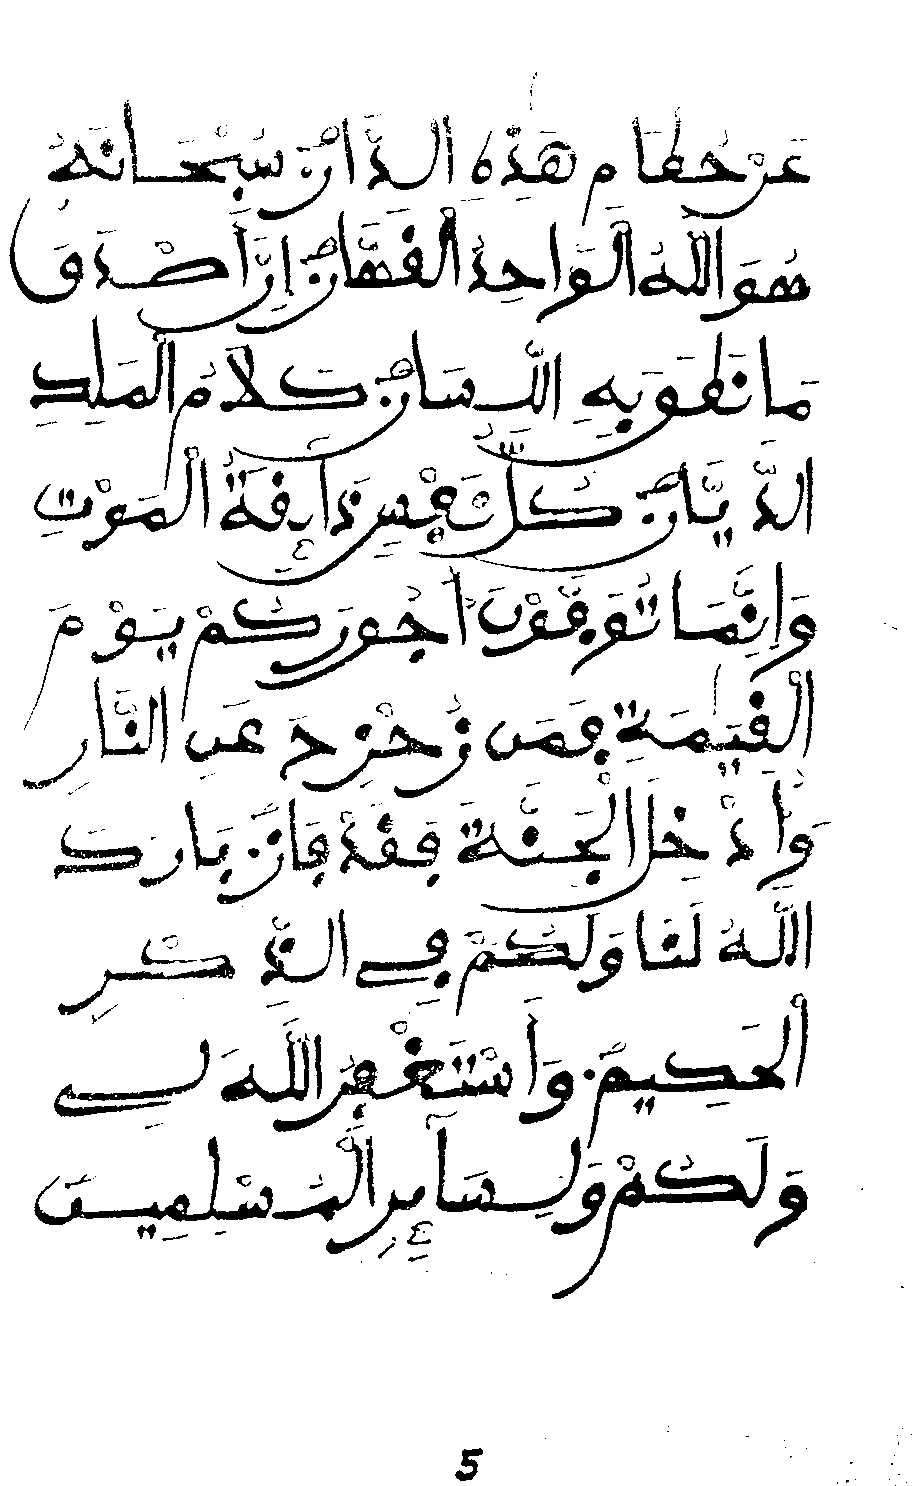 عَن حُطَامِ هَذِهِ الدَّارِ سُبْحَانَهُ
هُوَ اللَّهُ الْوَاحِدُ الْقَهَّارُ إِنَّ أَصْدَقَ
مَا نَطَقَ بِهِ اللِّسَانُ كَلَامُ الْمَلِكِ
الدَّيَّانِ كُلُّ نَفْسٍ ذَآئِقَةُ الْمَوْتِ
وَإِنَّمَا تُوَفَّوْنَ أُجُورَكُمْ يَوْمَ
الْقِيَٰمَةِ فَمَن زُحْزِحَ عَنِ النَّارِ
وَأُدْخِلَ الْجَنَّةَ فَقَدْ فَازَ بَارَكَ
اللَّهُ لَنَا وَلَكُمْ فِي الذِّكْرِ
الْحَكِيمِ وَأَسْتَغْفِرُ اللَّهَ لِي
وَلَكُمْ وَلِسَآئِرِ الْمُسْلِمِينَ
5